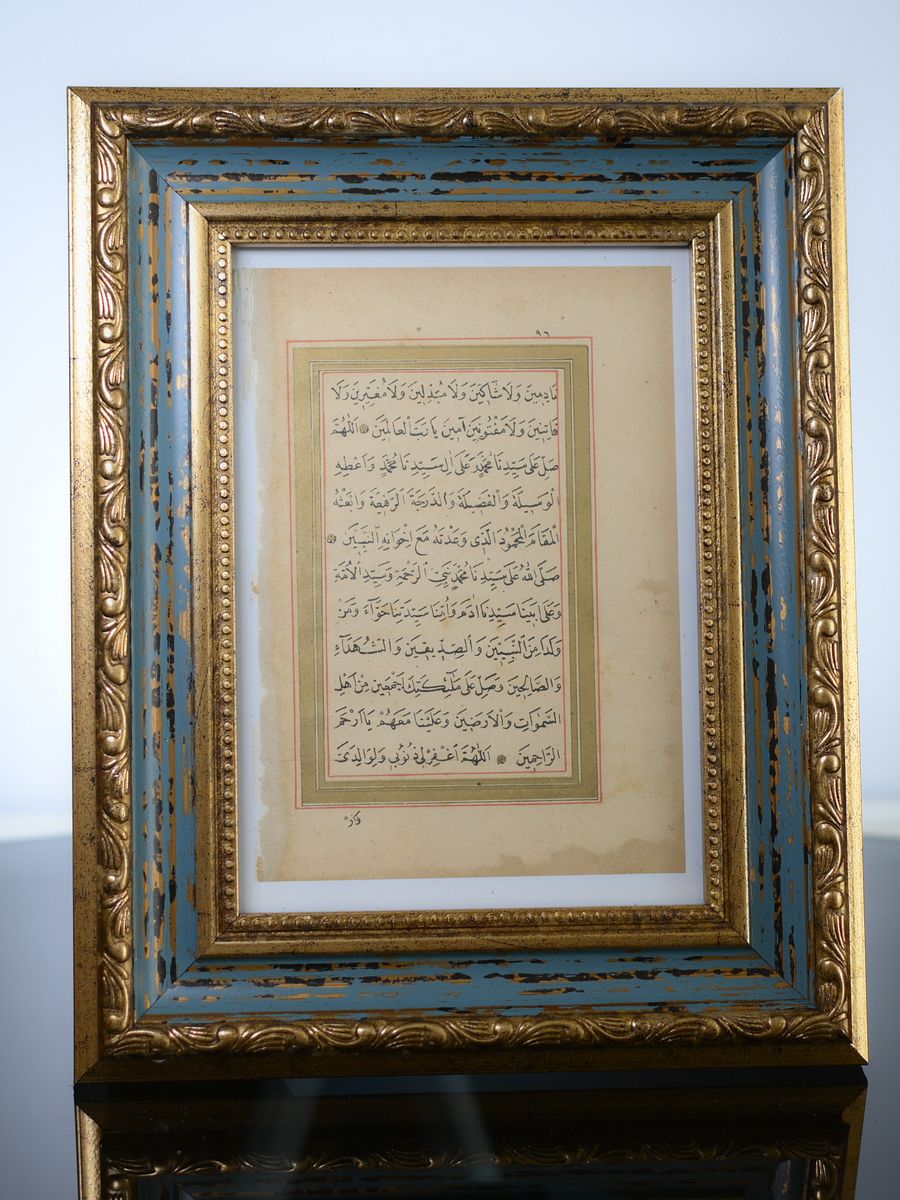 ٩٦
نَادِمِينَ وَلَا شَاكِّينَ وَلَا مُبَدِّلِينَ وَلَا مُغَيِّرِينَ وَلَا
فَاتِنِينَ وَلَا مَفْتُونِينَ آمِينَ يَا رَبَّ الْعَالَمِينَ اَللّٰهُمَّ
صَلِّ عَلٰى سَيِّدِنَا مُحَمَّدٍ وَعَلٰى اٰلِ سَيِّدِنَا مُحَمَّدٍ وَاَعْطِهِ
الْوَسِيلَةَ وَالْفَضِيلَةَ وَالدَّرَجَةَ الرَّفِيعَةَ وَابْعَثْهُ
الْمَقَامَ الْمَحْمُودَ الَّذِى وَعَدْتَهُ مَعَ اِخْوَانِهِ النَّبِيِّينَ
صَلَّى اللّٰهُ عَلٰى سَيِّدِنَا مُحَمَّدٍ نَبِيِّ الرَّحْمَةِ وَسَيِّدِ الْاُمَّةِ
وَعَلٰى اَبِينَا سَيِّدِنَا اٰدَمَ وَاُمِّنَا سَيِّدَتِنَا حَوَّاءَ وَمَنْ
وَلَدَا مِنَ النَّبِيِّينَ وَالصِّدِّيقِينَ وَالشُّهَدَاءِ
وَالصَّالِحِينَ وَصَلِّ عَلٰى مَلٰئِكَتِكَ اَجْمَعِينَ مِنْ اَهْلِ
السَّمٰوَاتِ وَالْاَرَضِينَ وَعَلَيْنَا مَعَهُمْ يَا اَرْحَمَ
الرَّاحِمِينَ اَللّٰهُمَّ اغْفِرْ لِى ذُنُوبِى وَلِوَالِدَىَّ